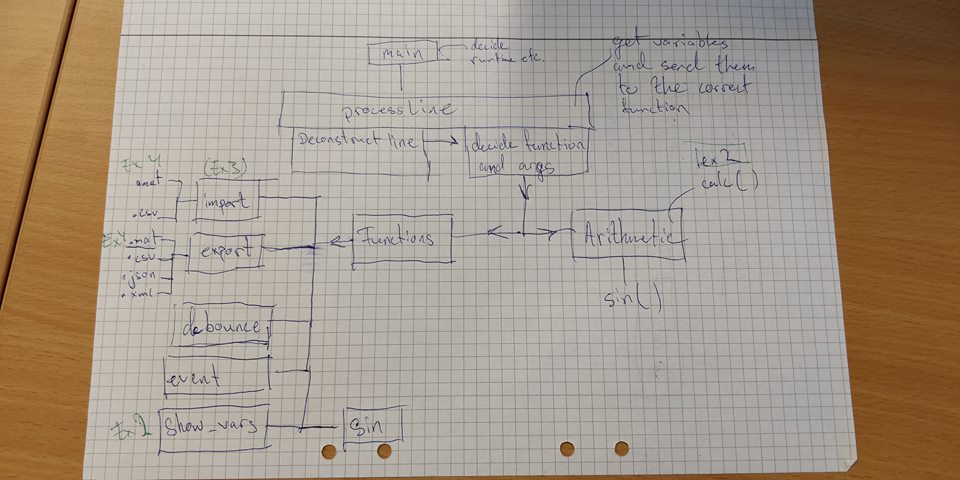 main
decide
runtime etc.
get variables
and send them
to the correct
function
processline
Deconstruct line
decide function
and args
Ex 4
.mat
.csv
(Ex3)
import
Ex4
.mat
.csv
.json
.xml
export
Functions
Arithmetic
ex2
calc()
sin()
debounce
event
Show_vars
Sin